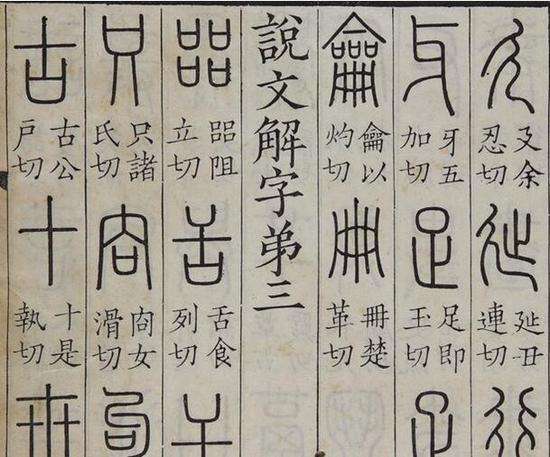 廴
廴余
忍切
㢟
㢟丑
連切
行
牙
牙五
加切
足
足即
玉切
疋
龠
龠以
灼切
冊
冊楚
革切
說文解字弟三
㗊
㗊阻
立切
舌
舌食
列切
干
只
只諸
氏切
㕯
㕯女
滑切
句
古
古公
戶切
十
十是
執切
卅